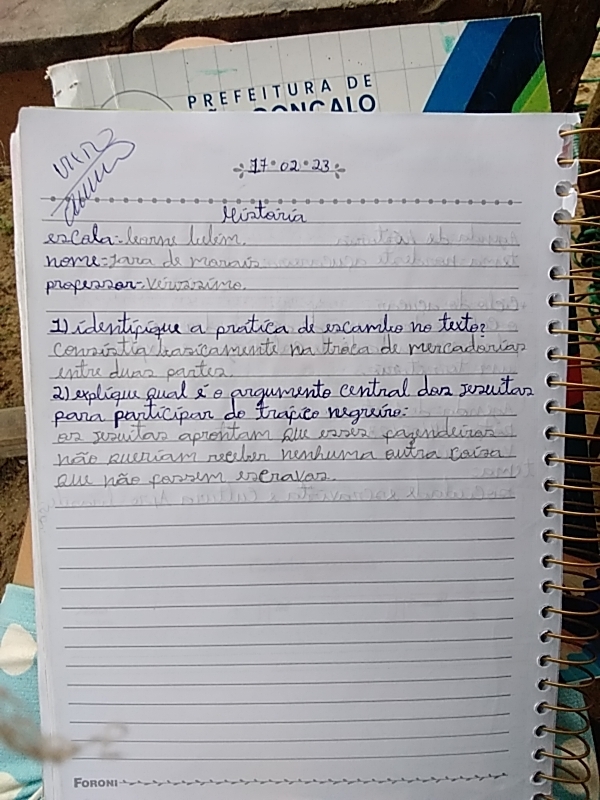 PREFEITURA DE
GONÇALO
VISTO
17.02.23
História
escola:
nome: Iara de morais
professor: Veríssimo.
1) identifique a prática de escambo no texto?
Consistia basicamente na troca de mercadorias
entre duas partes.
2) explique qual é o argumento central dos jesuítas
para participar do trafico negreiro:
os jesuítas apontam que esses fazendeiros
não queriam receber nenhuma outra coisa
que não fossem escravos.
FORONI